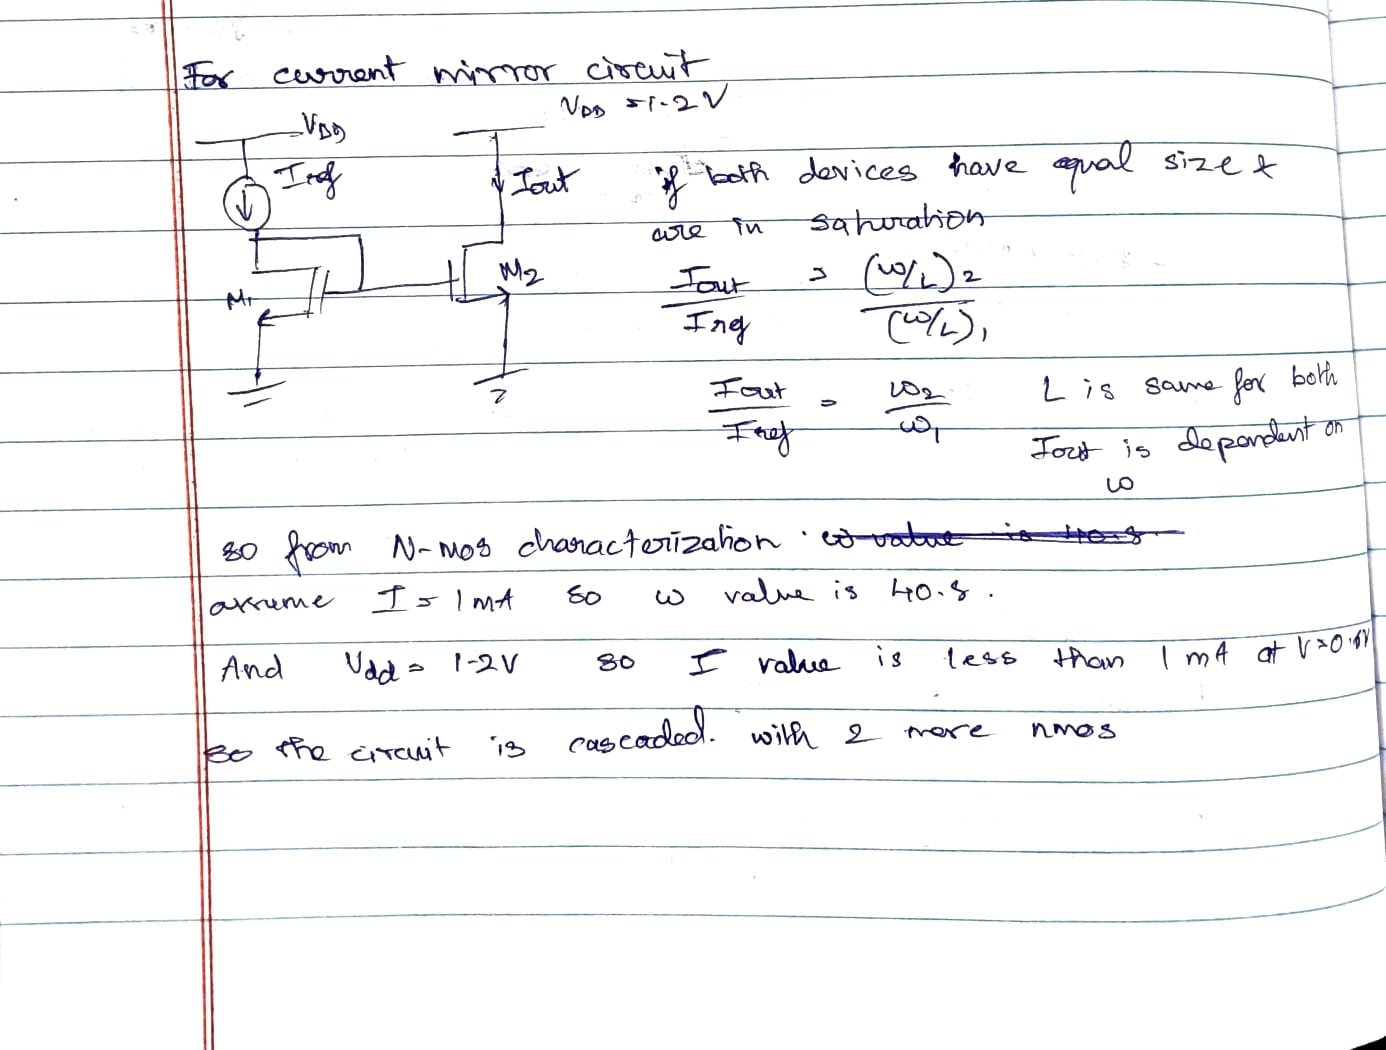 For current mirror circuit
VDD = 1.2 V
VDD
Iref
Iout
M1
M2
if both devices have equal size &
are in saturation
Iout/Iref = (W/L)2/(W/L)1
Iout/Iref = W2/W1
L is same for both
Iout is dependent on
W
so from N-mos characterization
assume I = 1 mA so W value is 40.8.
And Vdd = 1.2V so I value is less than 1 mA at
so the circuit is cascaded. with 2 more nmos